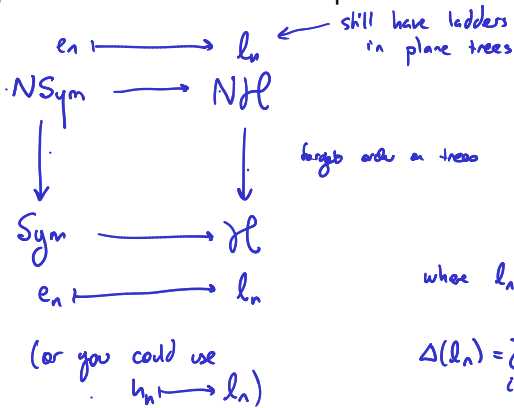 still have ladders
in plane trees
eₙ ↦ lₙ
NSym → Nℋ
forget order on trees
Sym → ℋ
eₙ ↦ lₙ
where lₙ
(or you could use
hₙ ↦ lₙ)
Δ(lₙ) =
i